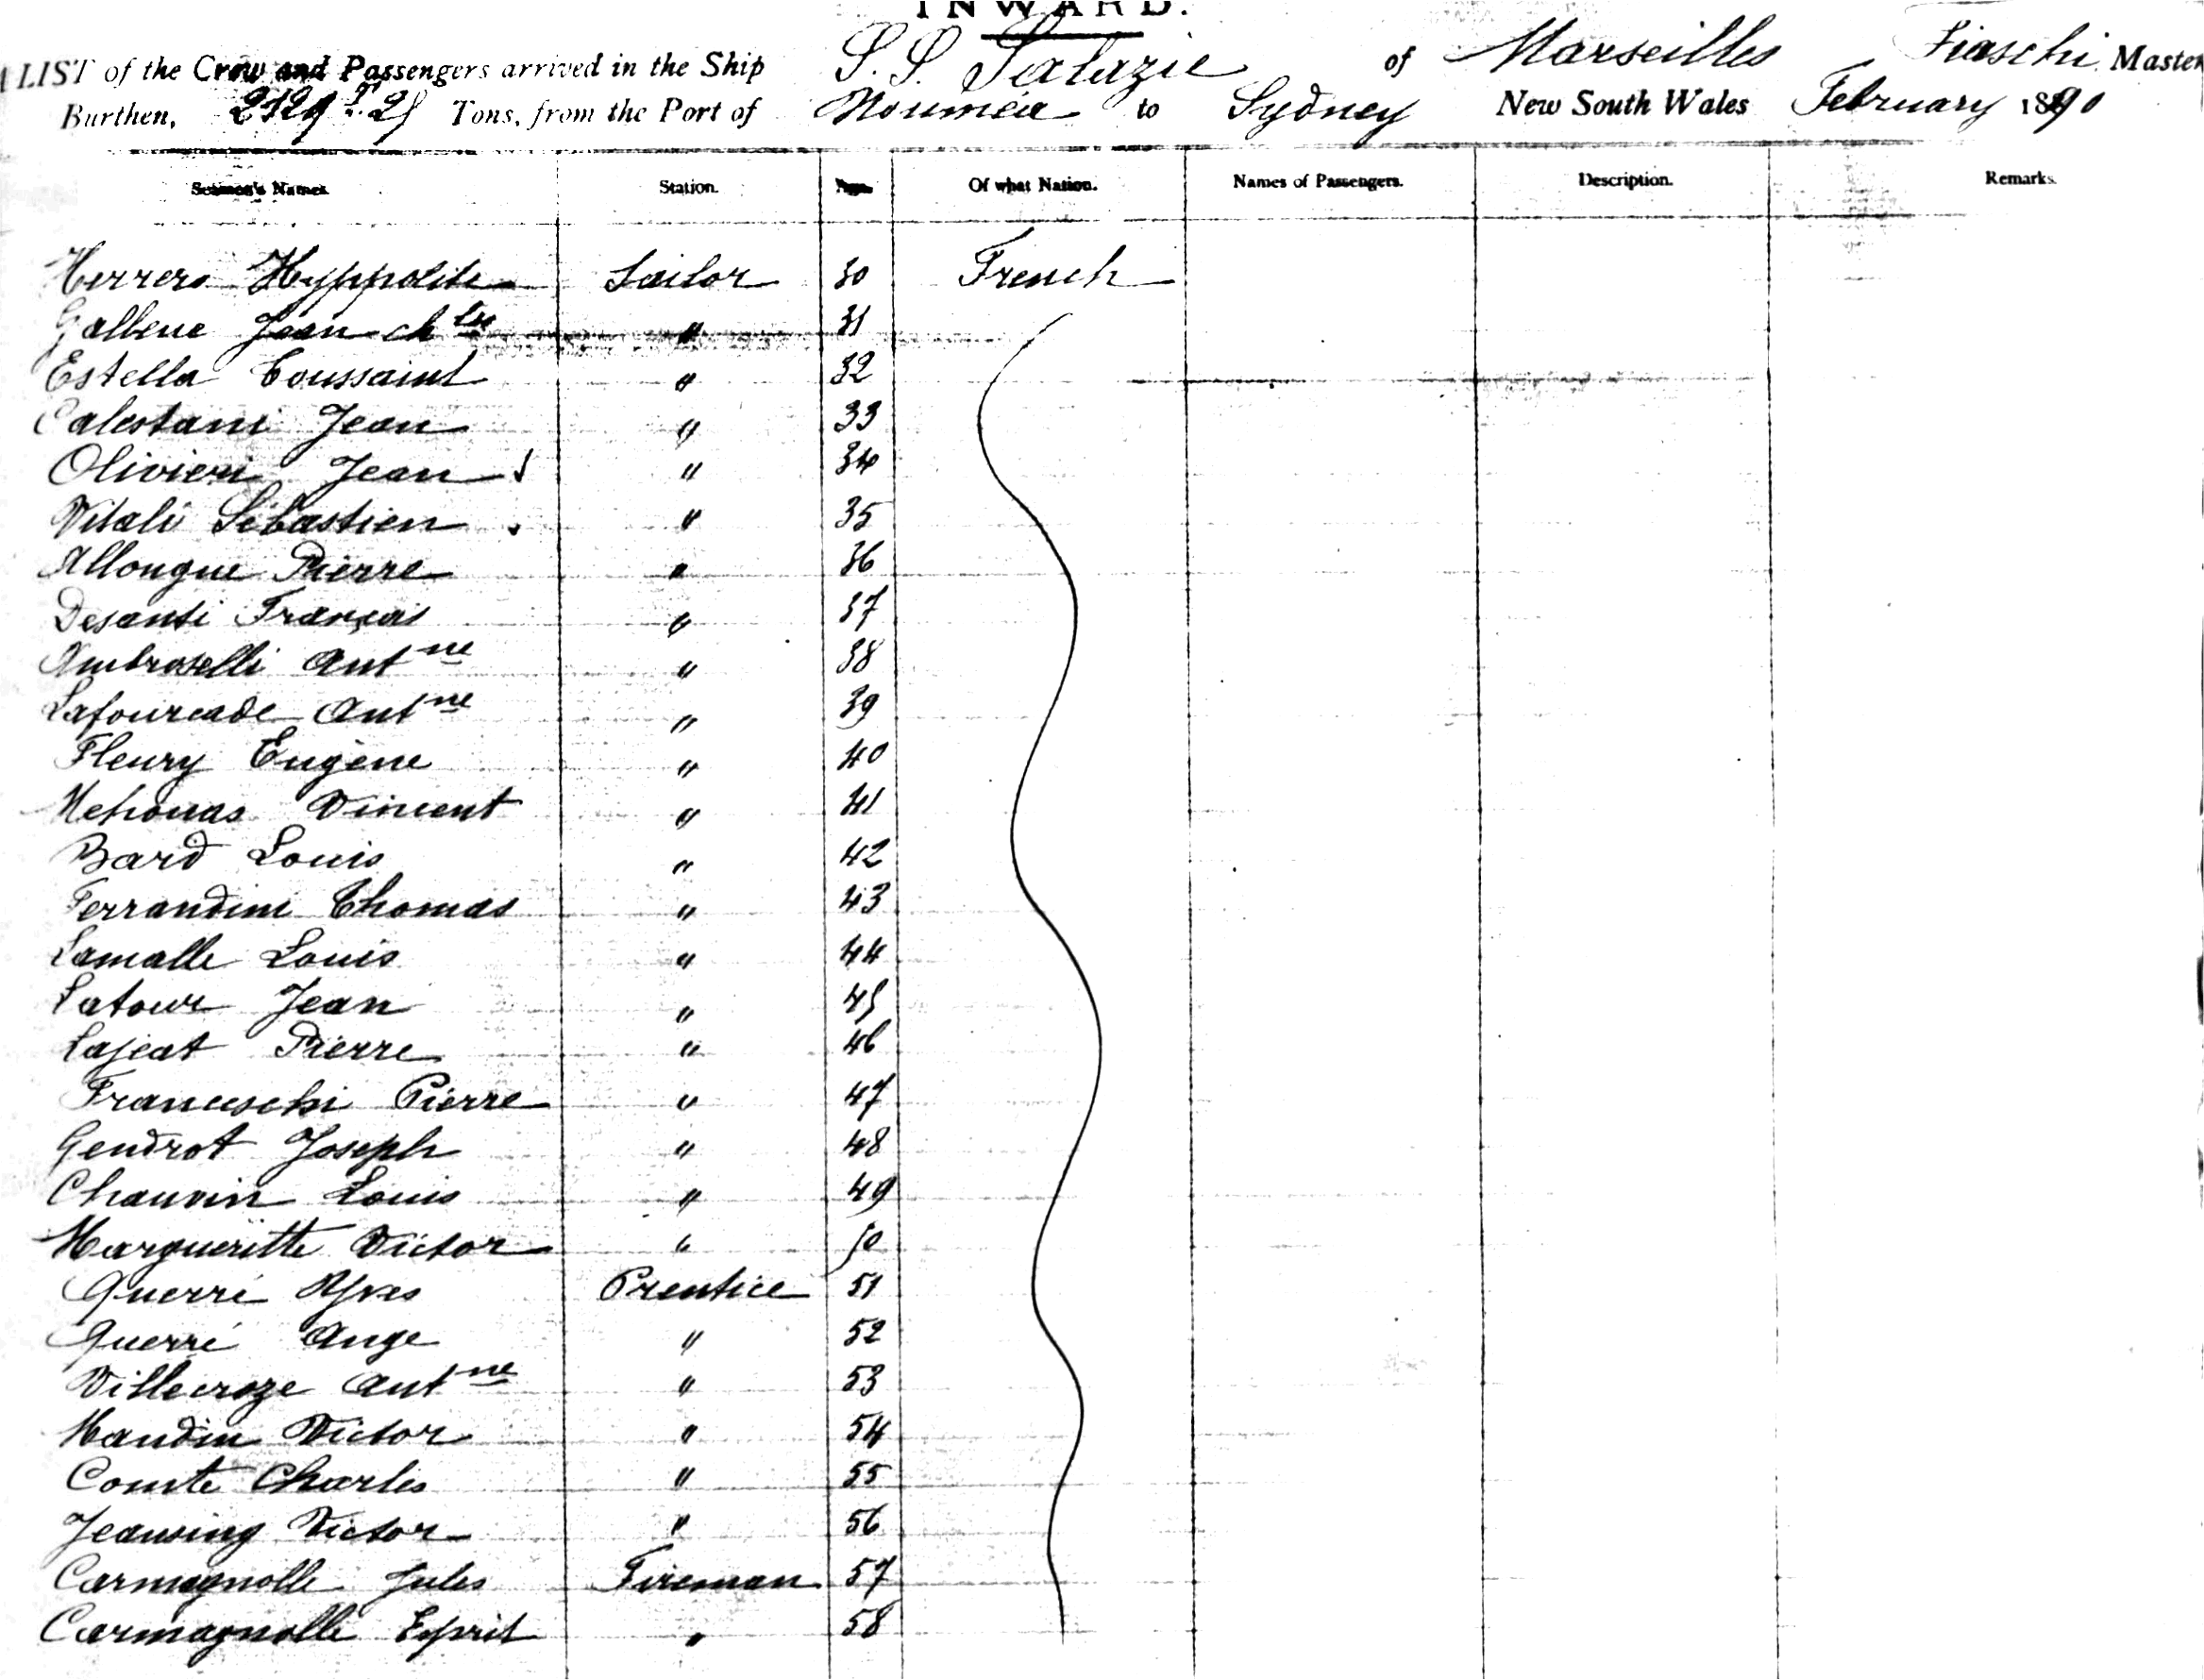 INWARD.
A LIST of the Crew and Passengers arrived in the Ship S. S. Salazie of Marseilles Fiaschi Master
Burthen, Tons, from the Port of Nouméa to Sydney New South Wales February 1890
Seamen's Names. Station. Age. Of what Nation. Names of Passengers. Description. Remarks.
Herrero Hyppolite Sailor 30 French
Galbene Jean " 31
Estella Toussaint " 32
Calestani Jean " 33
Olivieri Jean " 34
Vitali Sébastien " 35
Allongue Pierre " 36
Desanti François " 37
Ambroselli Antne " 38
Lafourcade Antne " 39
Fleury Eugène " 40
Mehouas Vincent " 41
Bard Louis " 42
Ferrandini Thomas " 43
Lamalle Louis " 44
Latour Jean " 45
Lajeat Pierre " 46
Franceschi Pierre " 47
Gendrot Joseph " 48
Chauvin Louis " 49
Margueritte Victor " 50
Guerré Yves Prentice 51
Guerré Ange " 52
Villecroze Antne " 53
Mandin Victor " 54
Comte Charles " 55
Jeansing Victor " 56
Carmagnolle Jules Fireman 57
Carmagnolle Esprit " 58